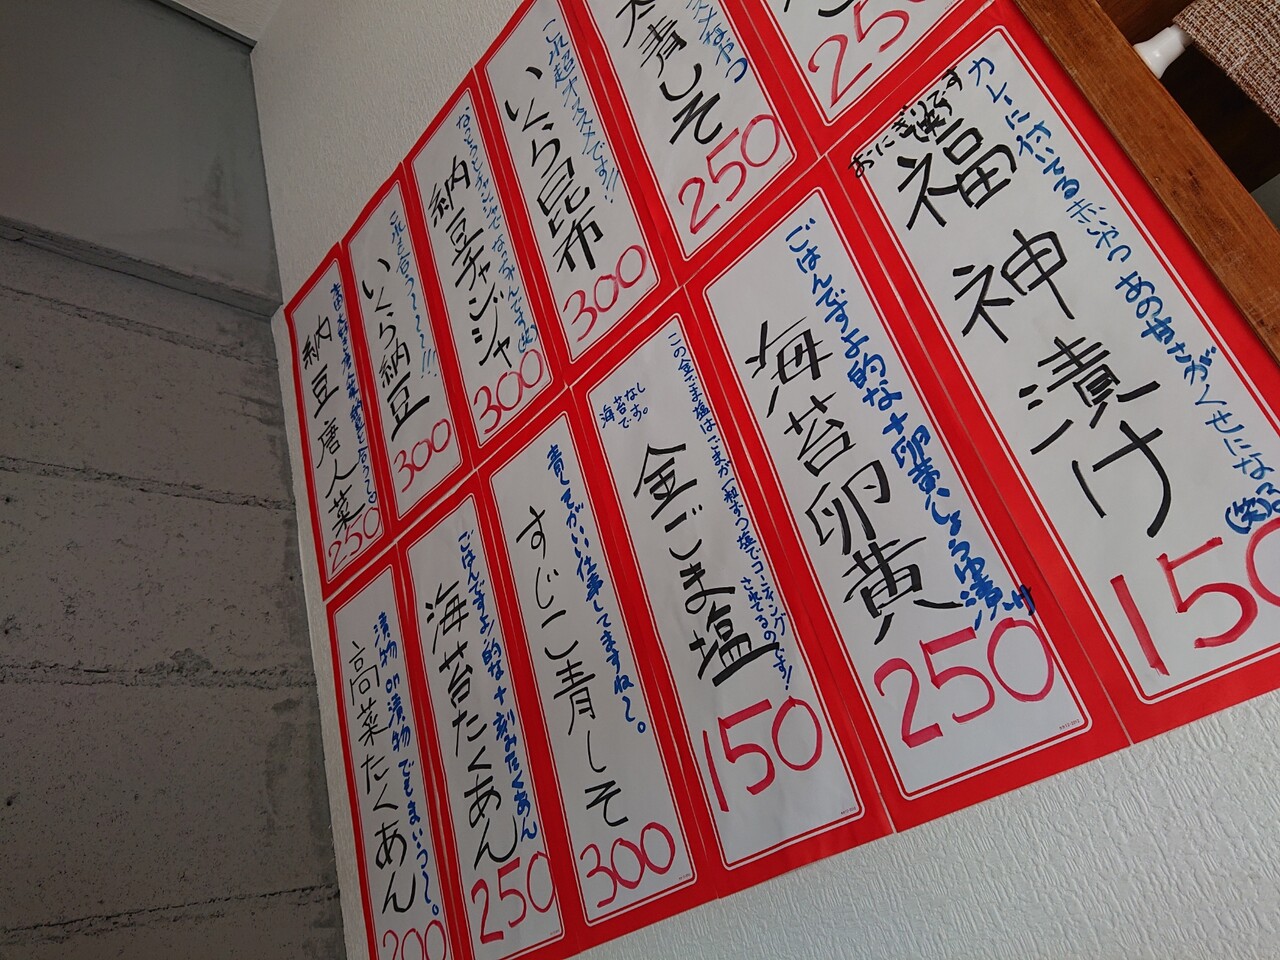 250
スメなやつ
青しそ
250
これ超オススメです!!
いくら昆布
300
なっとうとチャンジャでなっちゃんです(笑)
納豆チャンジャ
300
これも合う〜〜〜!!!
いくら納豆
300
納豆唐人菜
250
カレーに付いてる赤いやつ あの甘さがくせになる(笑)
おにぎり界です
福神漬け
150
ごはんですよ的な+卵黄しょうゆ漬け
海苔卵黄
250
この金ごま塩はごまが一粒ずつ塩でコーティングされてるのです!
海苔なしです。
金ごま塩
150
青しそがいい仕事してますね〜。
すじこ青しそ
300
ごはんですよ的な+刻みたくあん
海苔たくあん
250
漬物on漬物でもまいう〜。
高菜たくあん
200